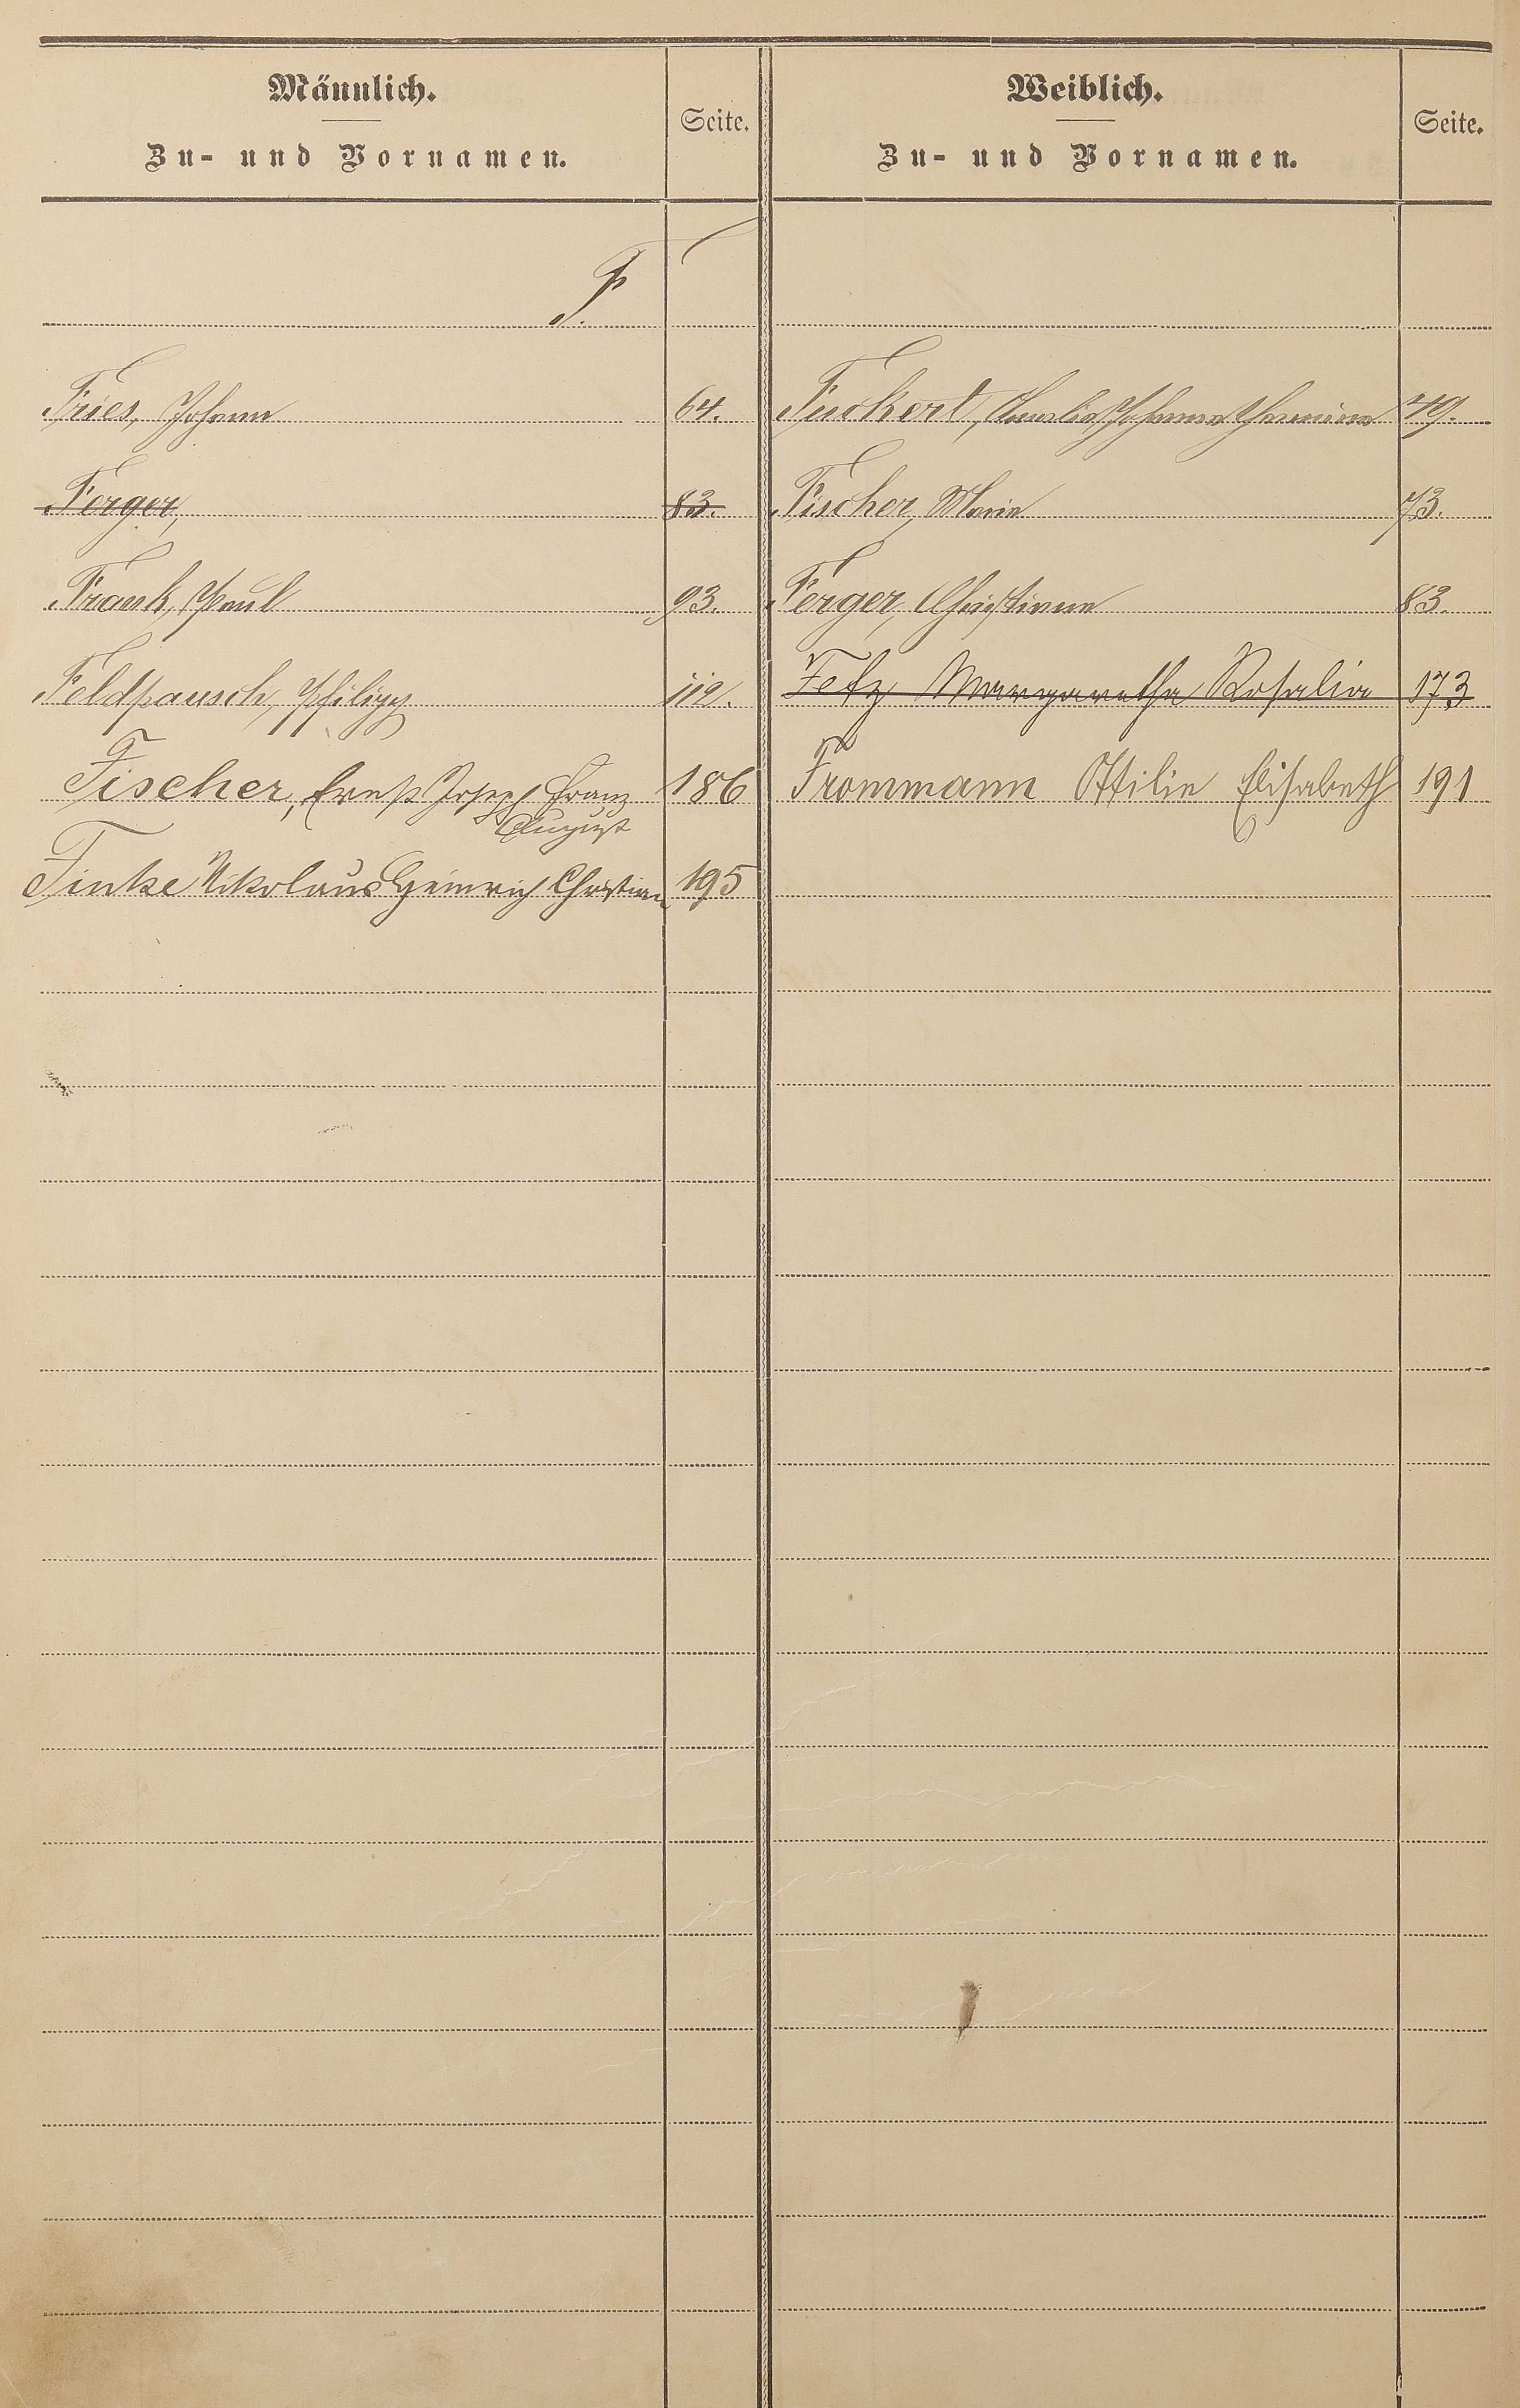 Männlich.
Zu- und Vornamen.
Seite.
Weiblich.
Zu- und Vornamen.
Seite.
F.
Fries, Johann 64.
Fuckert, Amalia Johanna Hermine 49.
Ferger, 83.
Fischer, Marie 73.
Frank, Paul 93.
Ferger, Christiane 83.
Feldpausch, Philipp 112.
Fetz Margaretha Rosalia 173
Fischer, Ernst Joseph Franz 186
August
Frommann Ottilie Elisabeth 191
Finke Nikolaus Heinrich Christian 195